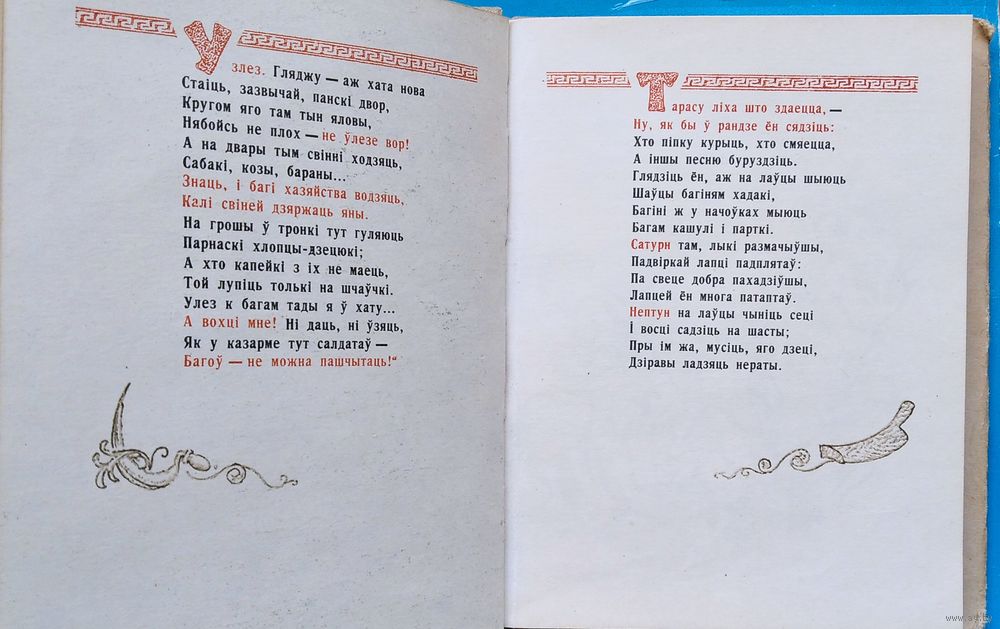 Узлез. Гляджу — аж хата нова
Стаіць, зазвычай, панскі двор,
Кругом яго там тын яловы,
Нябойсь не плох — не ўлезе вор!
А на двары тым свінні ходзяць,
Сабакі, козы, бараны...
Знаць, і багі хазяйства водзяць,
Калі свіней дзяржаць яны.
На грошы ў тронкі тут гуляюць
Парнаскі хлопцы-дзецюкі;
А хто капейкі з іх не маець,
Той лупіць толькі на шчаўчкі.
Улез к багам тады я ў хату...
А вохці мне! Ні даць, ні ўзяць,
Як у казарме тут салдатаў —
Багоў — не можна пашчытаць!“
Тарасу ліха што здаецца, —
Ну, як бы ў рандзе ён сядзіць:
Хто піпку курыць, хто смяецца,
А іншы песню буруздзіць.
Глядзіць ён, аж на лаўцы шыюць
Шаўцы багіням хадакі,
Багіні ж у начоўках мыюць
Багам кашулі і парткі.
Сатурн там, лыкі размачыўшы,
Падвіркай лапці падплятаў:
Па свеце добра пахадзіўшы,
Лапцей ён многа патаптаў.
Нептун на лаўцы чыніць сеці
І восці садзіць на шасты;
Пры ім жа, мусіць, яго дзеці,
Дзіравы ладзяць нераты.
www.ay.by